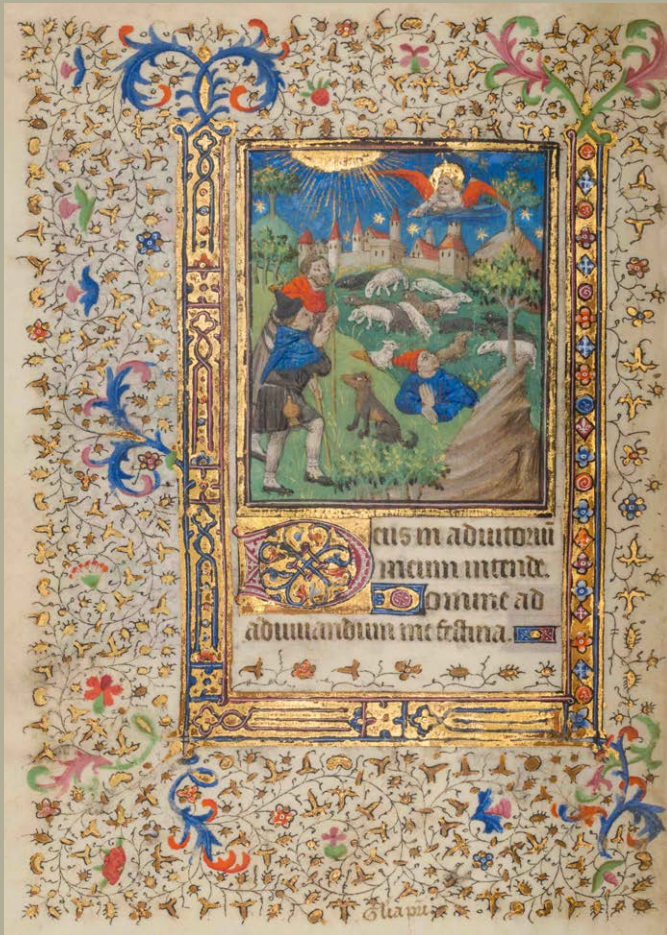 Deus in adiutoriũ
meum intende.
Domine ad
adiuuandum me festina.
Glia pri